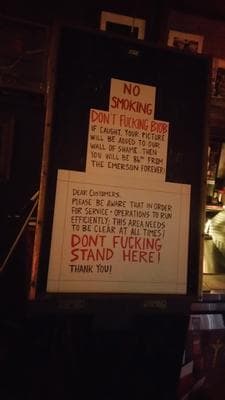 NO
SMOKING
DON'T FUCKING BOOB
IF CAUGHT, YOUR PICTURE
WILL BE ADDED TO OUR
WALL OF SHAME. THEN
YOU WILL BE 86'D FROM
THE EMERSON FOREVER!
DEAR CUSTOMERS,
PLEASE BE AWARE THAT IN ORDER
FOR SERVICE + OPERATIONS TO RUN
EFFICIENTLY; THIS AREA NEEDS
TO BE CLEAR AT ALL TIMES!
DONT FUCKING
STAND HERE!
THANK YOU!